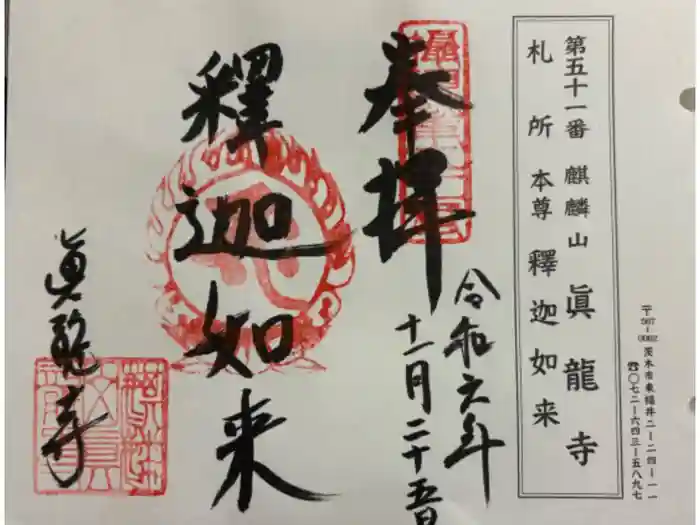 第五十一番 麒麟山 眞龍寺
札所本尊 釋迦如来
〒567-0062 茨木市東福井二ー二四ー一一
☎〇七二ー六四三ー五八九七
奉拝
令和六年
十一月二十五日
釋迦如来
眞龍寺